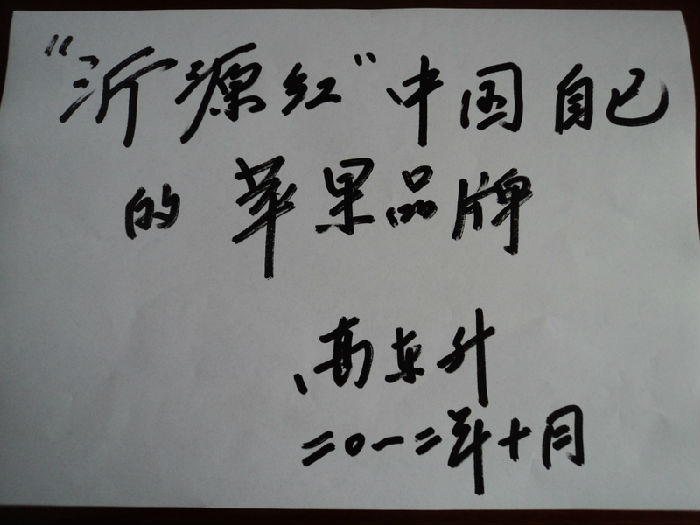 “沂源红”中国自己
的苹果品牌
高东升
二〇一二年十月